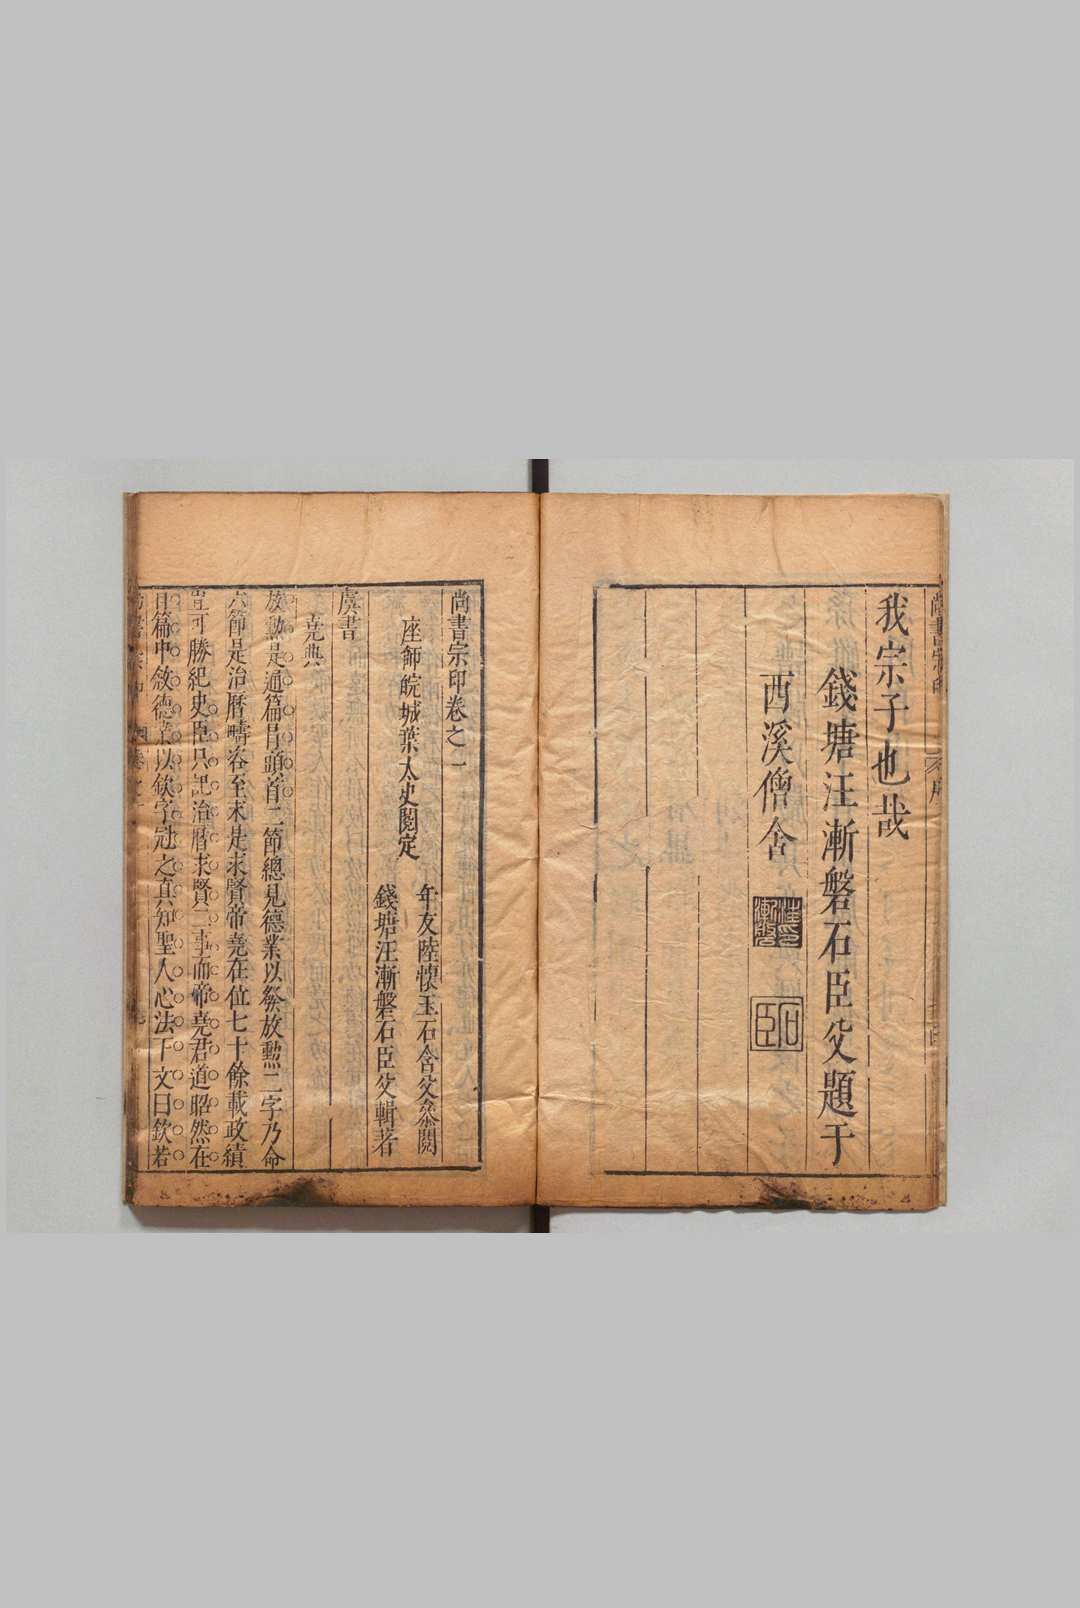 我宗子也哉
錢塘汪漸磐石臣父題于
西溪僧舍
汪漸磐印
石臣
尚書宗印卷之一
座師皖城葉太史閱定
年友陸懷玉石含父叅閱
錢塘汪漸磐石臣父輯著
虞書
堯典
放勲是通篇冐頭首二節總見德業以發放勲二字乃命
六節是治曆疇咨至末是求賢帝堯在位七十餘載政績
豈可勝紀史臣只記治曆求賢二事而帝堯君道昭然在
目篇中敘德業以欽字冠之真知聖人心法下文曰欽若